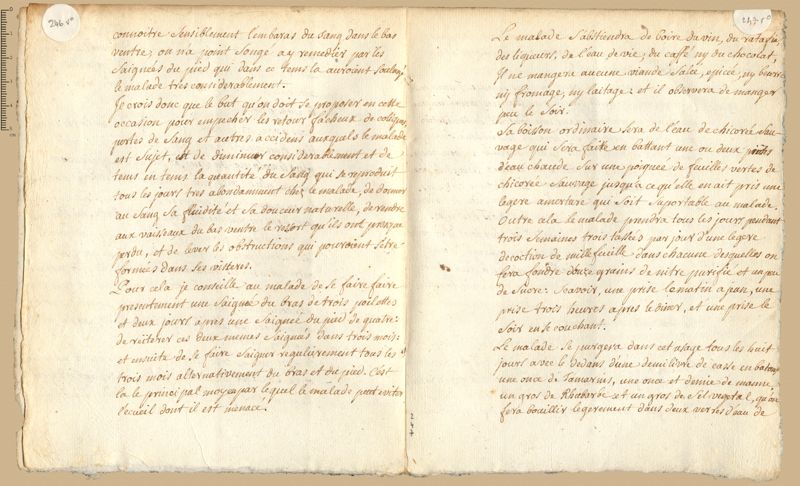 246 v°
connoitre sensiblement l'embaras du sang dans le bas
ventre, on n'a point songé a y remedier par les
saignées du pied qui dans ce tems la auroient soulagé
le malade tres considerablement.
Je crois donc que le but qu'on doit se proposer en cette
occasion pour empecher les retour facheux de coliques,
pertes de sang et autres accidens auxquels le malade
est sujet, est de diminuer considerablement et de
tems en tems la quantité du sang qui se reproduit
tous les jours tres abondamment chez le malade, de donner
au sang sa fluidité et sa douceur naturelle, de rendre
aux vaisseaux du bas ventre le ressort qu'ils ont presque
perdu, et de lever les obstructions qui pourroient s'etre
formées dans ses visceres.
Pour cela je conseille au malade de se faire faire
presentement une saignée du bras de trois poilettes
et deux jours apres une saignée du pied de quatre:
de reiterer ces deux memes saignées dans trois mois:
et ensuite de se faire saigner regulierement tous les
trois mois alternativement du bras et du pied. C'est
la le principal moyen par lequel le malade peut eviter
l'ecueil dont il est menacé.
243 r°
Le malade s'abstiendra de boire du vin, du ratafia,
des liqueurs, de l'eau de vie, du café ny du chocolat,
Il ne mangera aucune viande salée, epicée, ny beurre
ny fromage, ny laitage: et il observera de manger
peu le soir.
Sa boisson ordinaire sera de l'eau de chicorée sau-
vage qui sera faite en battant une ou deux pintes
d'eau chaude sur une poignée de feuilles vertes de
chicorée sauvage jusqu'a ce qu'elle en ait pris une
legere amertume qui soit suportable au malade.
Outre cela le malade prendra tous les jours pendant
trois semaines trois tasses par jour d'une legere
decoction de millefeuille dans chacune desquelles on
fera fondre douze grains de nitre purifié et un peu
de sucre: Scavoir, une prise le matin a jeun, une
prise trois heures apres le diner, et une prise le
soir en se couchant.
Le malade se purgera dans cet usage tous les huit
jours avec le dedans d'une demi livre de casse en baton,
une once de Tamarins, une once et demie de manne,
un gros de Rhubarbe et un gros de sel vegetal, qu'on
fera bouillir legerement dans deux verres d'eau de